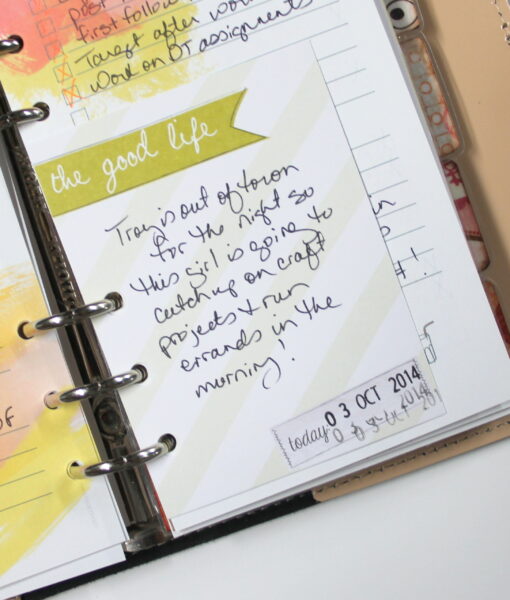 post
first follow
Target after wor
Work on DT assignments
the good life
Troy is out of town
for the night so
this girl is going to
catching on craft
projects & run
errands in the
morning!
today: 03 OCT 2014
03 OCT 201